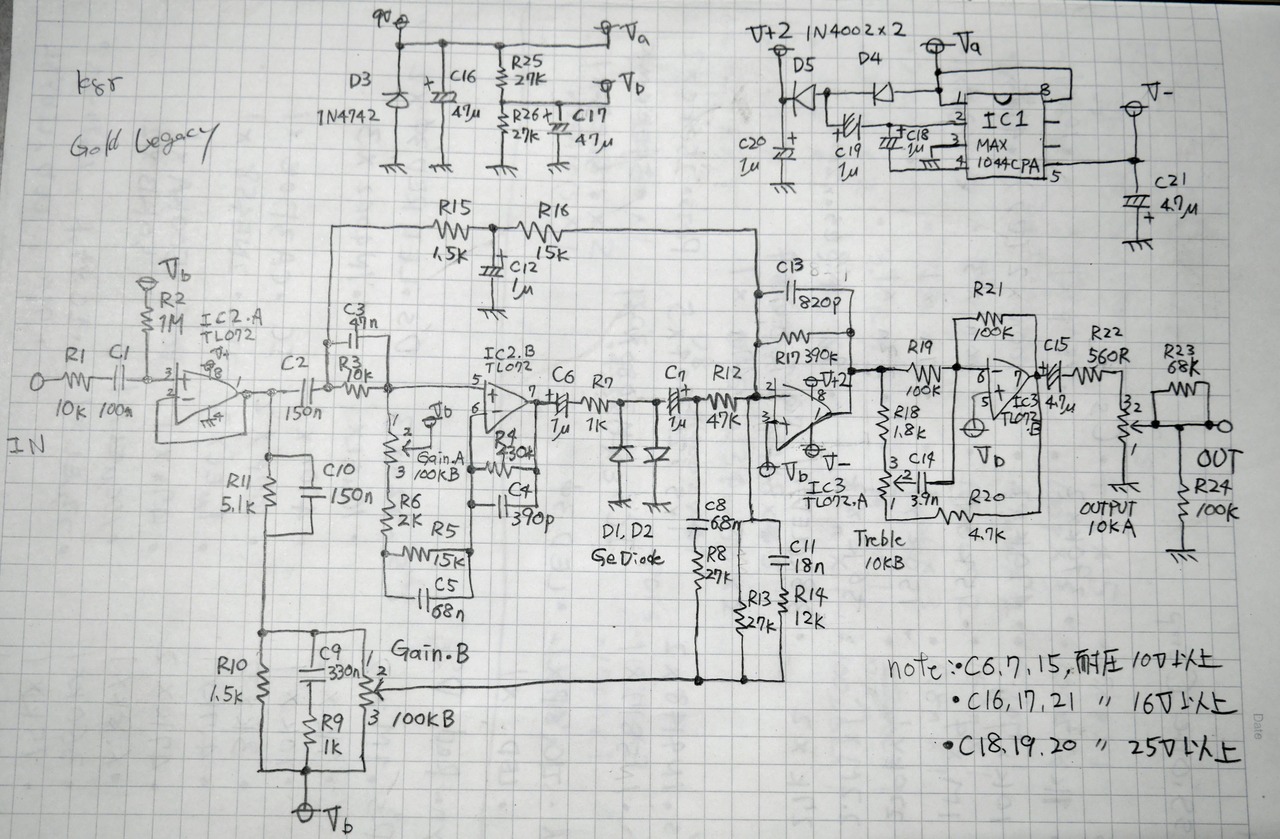 ksr
Gold Legacy
9V
Va
D3
1N4742
C16
47μ
R25
27K
R26
27K
Vb
C17
47μ
V+2
1N4002×2
D5
D4
Va
C20
1μ
C19
1μ
C18
1μ
1
2
3
4
8
5
IC1
MAX
1044CPA
V-
C21
4.7μ
R15
1.5K
R16
15K
C12
1μ
IN
R1
10K
C1
100n
Vb
R2
1M
IC2.A
TL072
V+
8
3
2
1
4
C2
150n
C3
47n
R3
10K
R11
5.1K
C10
150n
1
2
3
Vb
Gain.A
100KB
R6
2K
R5
15K
C5
68n
IC2.B
TL072
5
6
7
R4
430K
C4
390p
C6
1μ
R7
1K
D1, D2
Ge Diode
C7
1μ
R12
47K
C8
68n
R8
27K
R13
27K
C11
18n
R14
12K
C13
820p
R17 390K
2
3
V+2
8
1
V-
Vb
IC3
TL072.A
R19
100K
R18
1.8K
3
2
1
C14
3.9n
Treble
10KB
R20
4.7K
R21
100K
6
5
7
IC3
TL072
.B
Vb
C15
4.7μ
R22
560R
3
2
1
OUTPUT
10KA
R23
68K
OUT
R24
100K
R10
1.5K
C9
330n
R9
1K
Gain.B
1
2
3
100KB
Vb
note:・C6,7,15,耐圧10V以上
・C16,17,21 〃 16V以上
・C18.19.20 〃 25V以上
Date